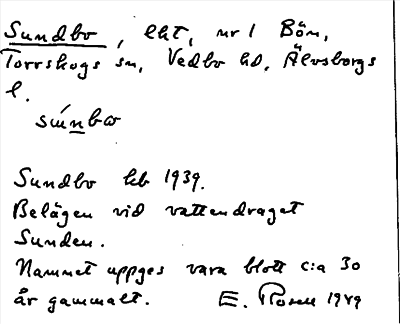 Sundbo, lht, nr 1 Bön,
Torrskogs sn, Vedbo hd, Älvsborgs
l.
Sundbo kb 1939.
Belägen vid vattendraget
Sunden.
Namnet uppges vara blott c:a 30
år gammalt. E. Rosell 1949